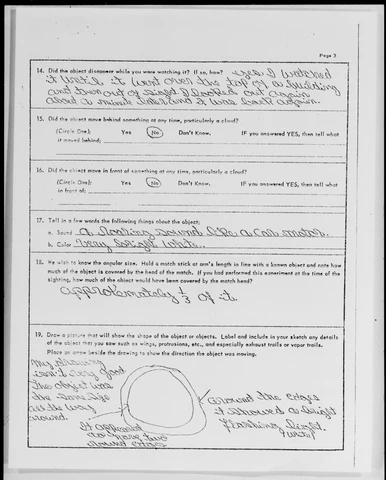 Page 3
14. Did the object disappear while you were watching it? If so, how? Yes I watched
it until it went over the top of a building
and then out of sight I looked out again
about a minute later and it was back again.
15. Did the object move behind something at any time, particularly a cloud?
(Circle One): Yes No Don't Know. IF you answered YES, then tell what
it moved behind:
16. Did the object move in front of something at any time, particularly a cloud?
(Circle One): Yes No Don't Know. IF you answered YES, then tell what
in front of:
17. Tell in a few words the following things about the object:
a. Sound a floating sound like a car motor.
b. Color Very bright white.
18. We wish to know the angular size. Hold a match stick at arm's length in line with a known object and note how
much of the object is covered by the head of the match. If you had performed this experiment at the time of the
sighting, how much of the object would have been covered by the match head?
approximately 1/3 of it.
19. Draw a picture that will show the shape of the object or objects. Label and include in your sketch any details
of the object that you saw such as wings, protrusions, etc., and especially exhaust trails or vapor trails.
Place an arrow beside the drawing to show the direction the object was moving.
My drawing
isn't very good
the object was
the same size
all the way
around.
It appeared
to have two
round edges
Around the edges
it showed a bright
flashing light.
white